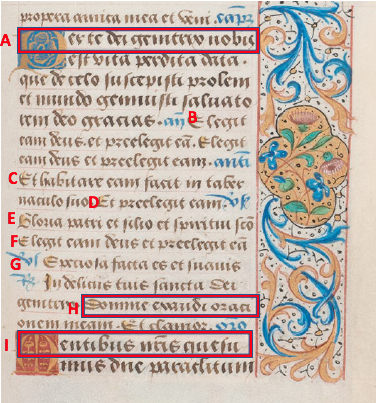 propera amica mea et veni. capr
A Per te dei genitrix nobis
est vita perdita data.
que de celo suscepisti prolem
et mundo genuisti saluato
rem deo gracias. an̄ B Elegit
eam deus et preelegit eā. Elegit
eam deus et preelegit eam. anti
C Et habitare eam facit in taber
naculo suo D Et preelegit eam. vs
E Gloria patri et filio et spiritui scō
F Elegit eam deus et preelegit eā
G vs Speciosa facta es et suauis
In deliciis tuis sancta dei
genitrix H Domine exaudi orati
onem meam. Et clamor. oro
I Mentibus nr̄is quesu
mus dn̄e paraclitum